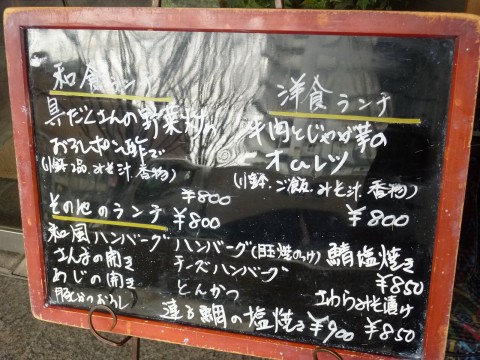 和食ランチ
具だくさんの野菜
おろしポン酢で
(小鉢2品.みそ汁.香物)
¥800
洋食ランチ
牛肉とじゃが芋の
オムレツ
(小鉢.ご飯.みそ汁.香物)
¥800
その他のランチ ¥800
和風ハンバーグ ハンバーグ(目玉焼のっけ)
さんまの開き チーズハンバーグ
あじの開き とんかつ
豚かつおろし
鯖塩焼き
¥850
さわらみそ漬け
¥850
連子鯛の塩焼き ¥900